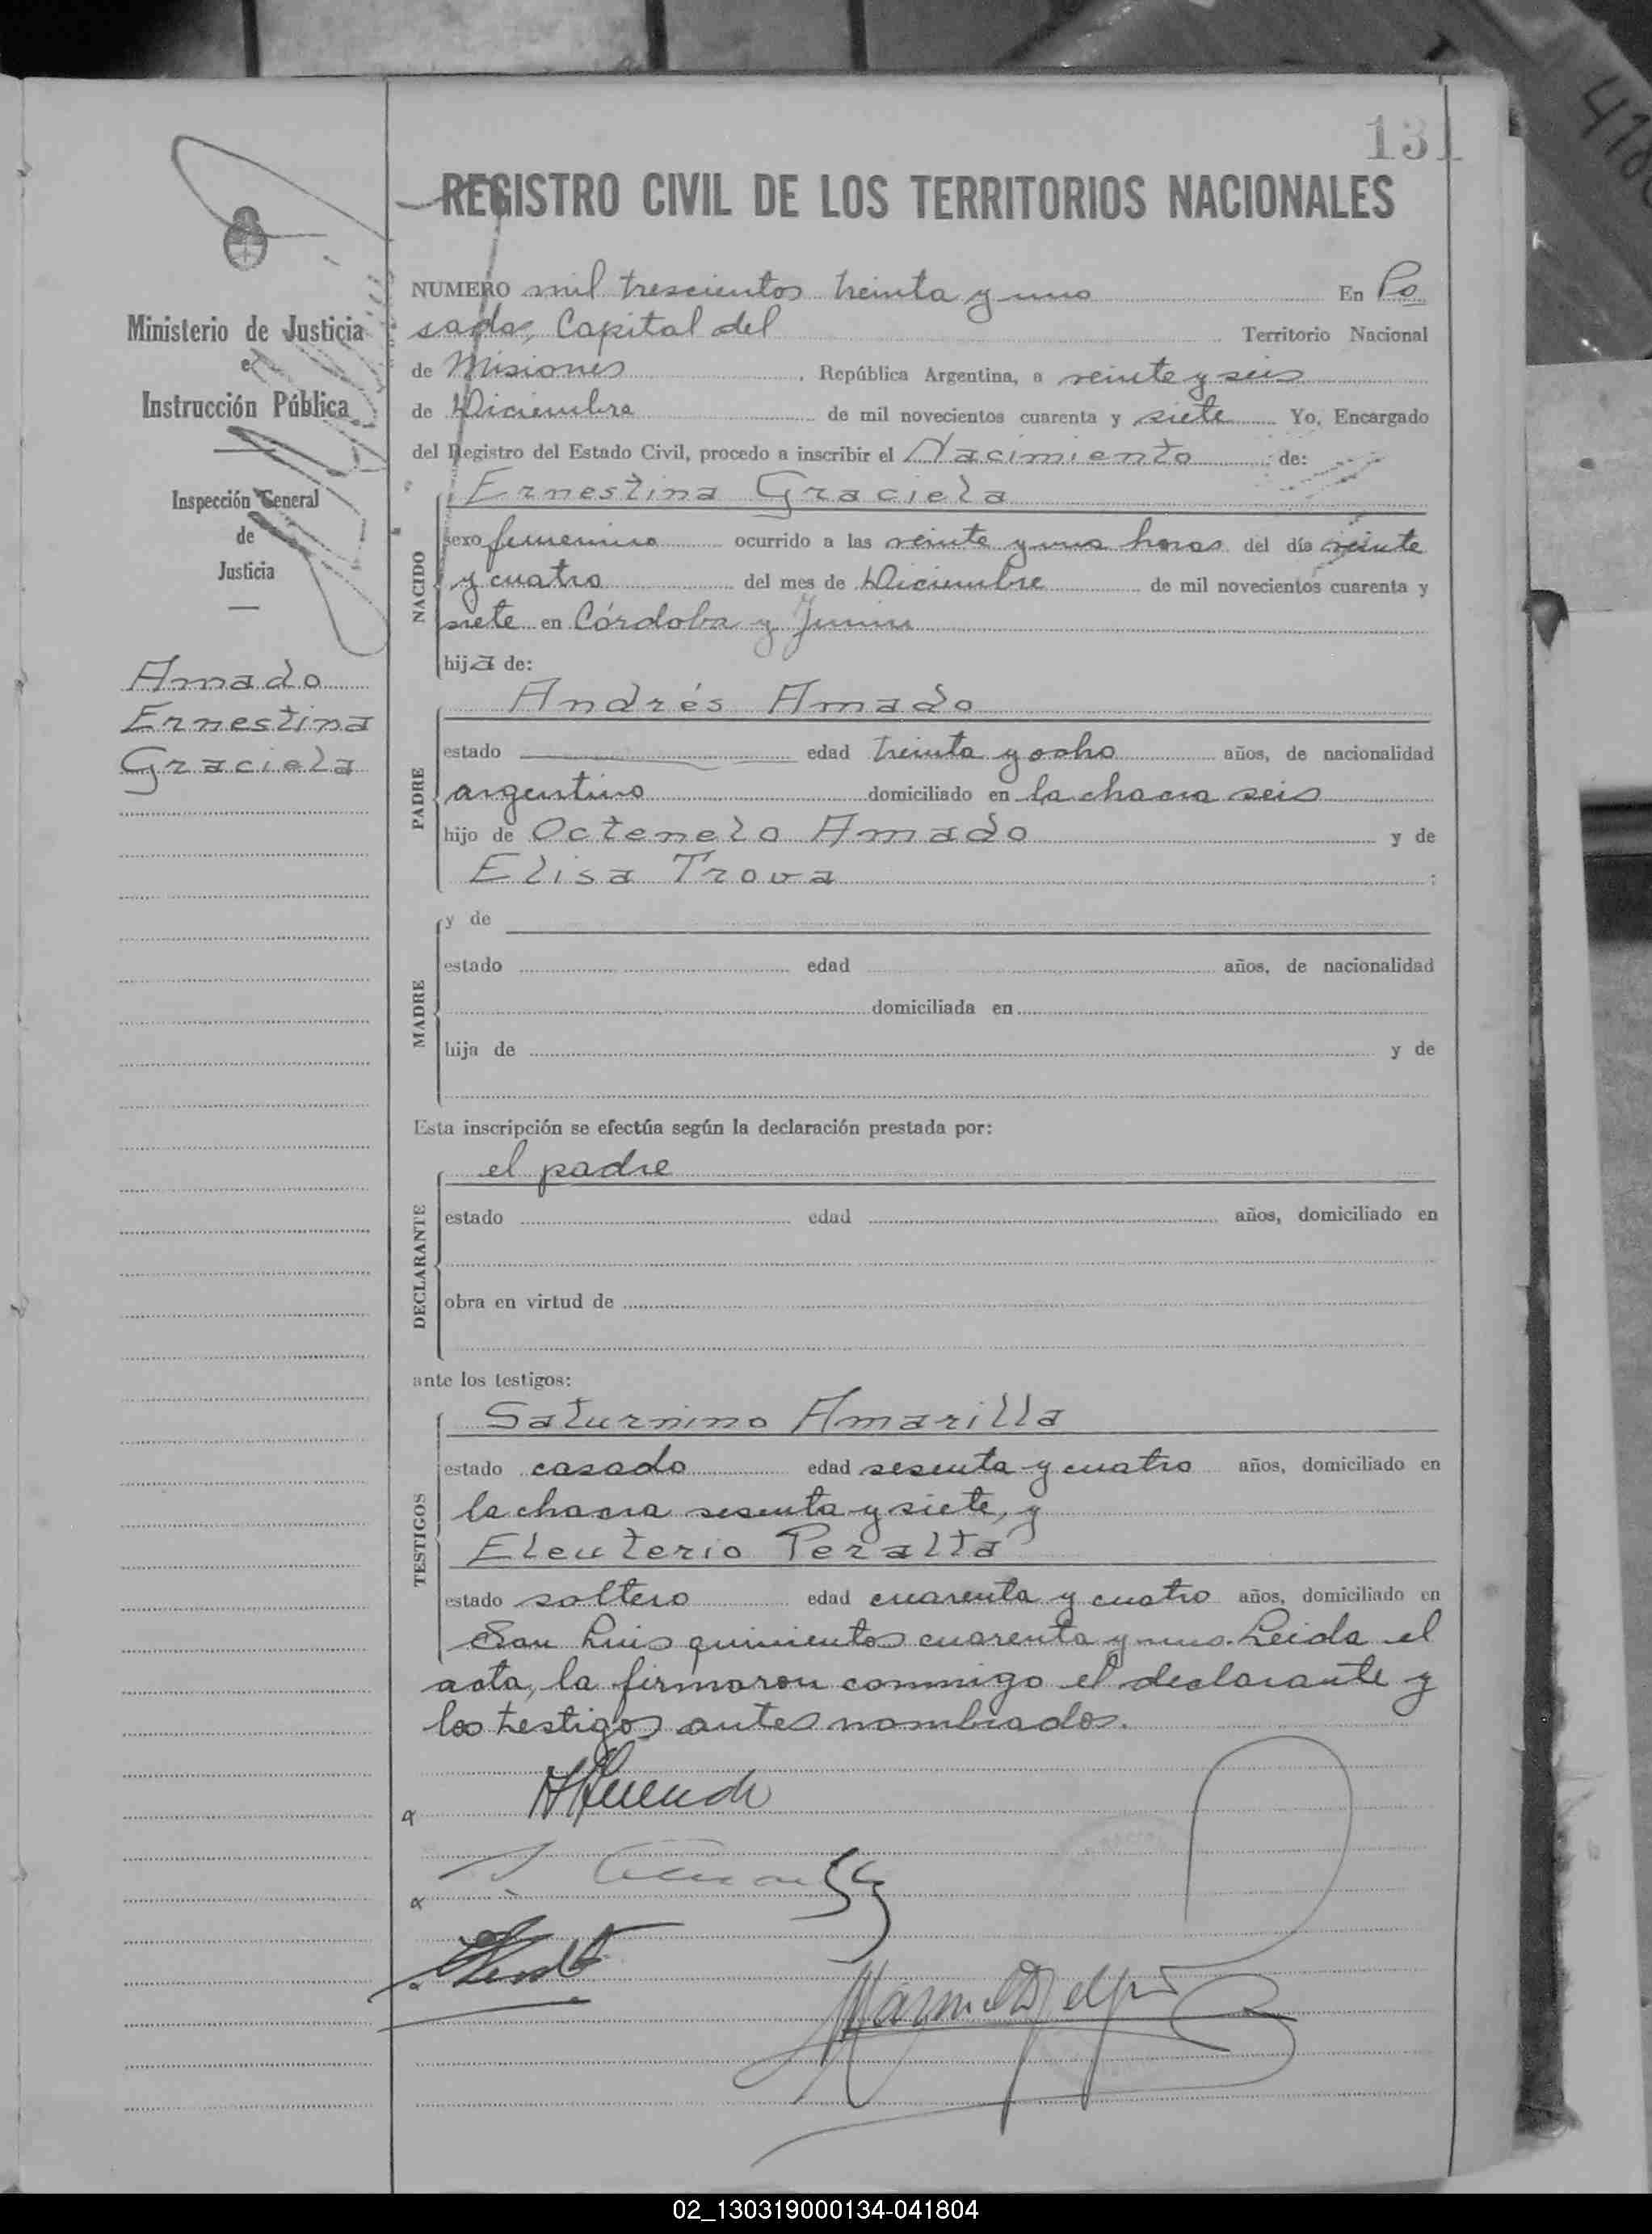 131
REGISTRO CIVIL DE LOS TERRITORIOS NACIONALES
NUMERO mil trescientos treinta y uno En Po
sadas, Capital del Territorio Nacional
de Misiones, República Argentina, a veinte y seis
de Diciembre de mil novecientos cuarenta y siete Yo, Encargado
del Registro del Estado Civil, procedo a inscribir el Nacimiento de:
Ernestina Graciela
sexo femenino ocurrido a las veinte y una horas del día veinte
y cuatro del mes de Diciembre de mil novecientos cuarenta y
siete en Córdoba y Junin
hija de:
NACIDO
Andrés Amado
estado edad treinta y ocho años, de nacionalidad
argentino domiciliado en la chacra seis
hijo de Octenelo Amado y de
Elisa Trova;
PADRE
y de
estado edad años, de nacionalidad
domiciliada en
hija de y de
MADRE
Esta inscripción se efectúa según la declaración prestada por:
el padre
estado edad años, domiciliado en
obra en virtud de
DECLARANTE
ante los testigos:
Saturnino Amarilla
estado casado edad sesenta y cuatro años, domiciliado en
la chacra sesenta y siete, y
Eleuterio Peralta
estado soltero edad cuarenta y cuatro años, domiciliado en
San Luis quinientos cuarenta y uno. Leida el
TESTIGOS
acta, la firmaron conmigo el declarante y
los testigos antes nombrados.
Ministerio de Justicia
e
Instrucción Pública
Inspección General
de
Justicia
Amado
Ernestina
Graciela
02_130319000134-041804